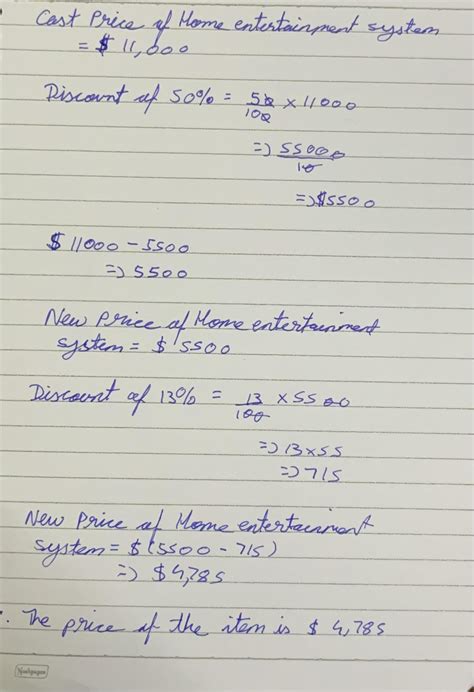 Cost Price of Home entertainment system
= $ 11,000
Discount of 50% = 50/100 x 11000
=) 55000/10
=) $5500
$ 11000 - 5500
=) 5500
New Price of Home entertainment
system = $ 5500
Discount of 13% = 13/100 x 5500
=) 13x55
=) 715
New Price of Home entertainment
system = $ (5500 - 715)
=) $4,785
∴ The price of the item is $ 4,785